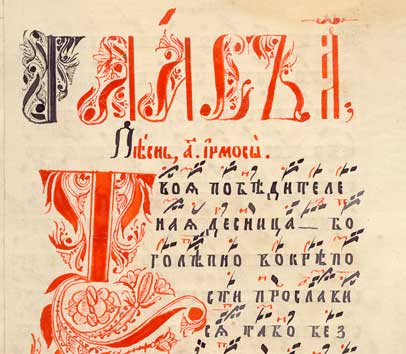 Гла́съ а҃,
Пѣ́снь, а҃. і҆рмосы̀.
Твоѧ побѣдителе
наѧ десница бо
голѣпно во крѣпо
сти прослави
сѧ тако без